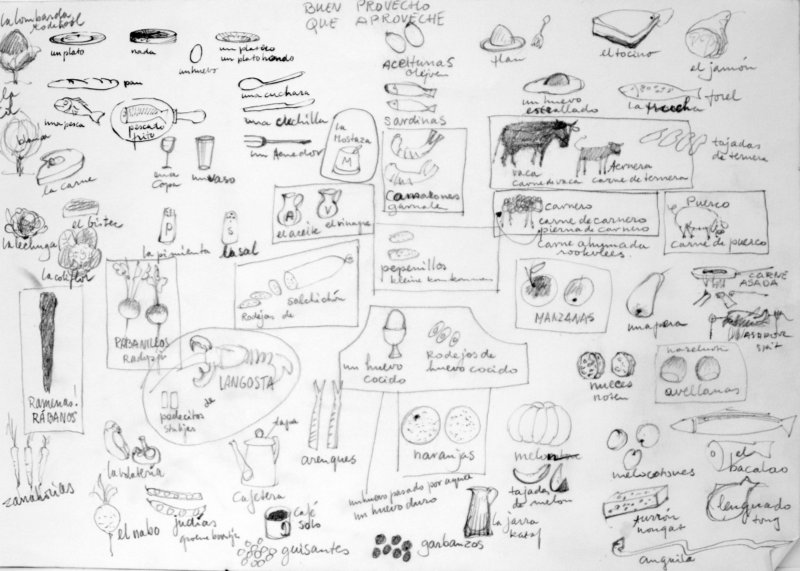 BUEN PROVECHO
QUE APROVECHE
la lombarda
rodekool
un plato
nada
un huevo
un plateo
un plato hondo
ACEITUNAS
olijven
flan
el tocino
el jamón
pan
una cuchara
un huevo
estrellado
la trucha
forel
una pesca
pescado
frito
una cuchilla
sardinas
un tenedor
la
Mostaza
M
una
copa
un vaso
la carne
camarones
garnale
vaca
carne de vaca
ternera
carne de ternera
tajadas
de ternera
el bistec
la lechuga
la coliflor
P
S
la pimienta
la sal
A
V
el aceite
el vinagre
carnero
carne de carnero
pierna de carnero
carne ahumada
rookvlees
Puerco
carne de puerco
pepenillos
kleine komkommer
salchichón
Rodejas de
RÁBANILLOS
Radijzen
MANZANAS
una pera
CARNE
ASADA
ASADOR
spit
Ramenas!
RÁBANOS
LANGOSTA
podecitos de
stukjes
un huevo
cocido
Rodejos de
huevo cocido
nueces
noten
hazelnoten
avellanas
zanahorias
la volatería
tapa
cafetera
arenques
naranjas
melon
tajada
de melon
melocotones
el
bacalao
el nabo
judías
groene boontjes
café
solo
guisantes
un huevo pasado por agua
un huevo duro
garbanzos
la jarra
karaf
turrón
nougat
lenguado
tong
anguila